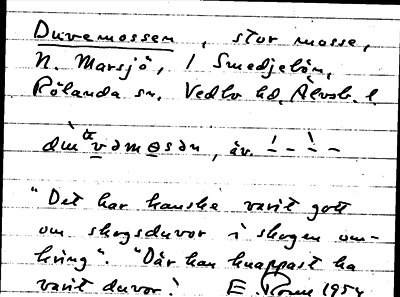 Duvemossen, stor mosse,
N. Marsjö, 1 Smedjebön,
Rölanda sn. Vedbo hd, Älvsb. l.
av. – – –
"Det har kanske varit gott
om skogsduvor i skogen om-
kring". "Där kan knappast ha
varit duvor." E. Rom 1954